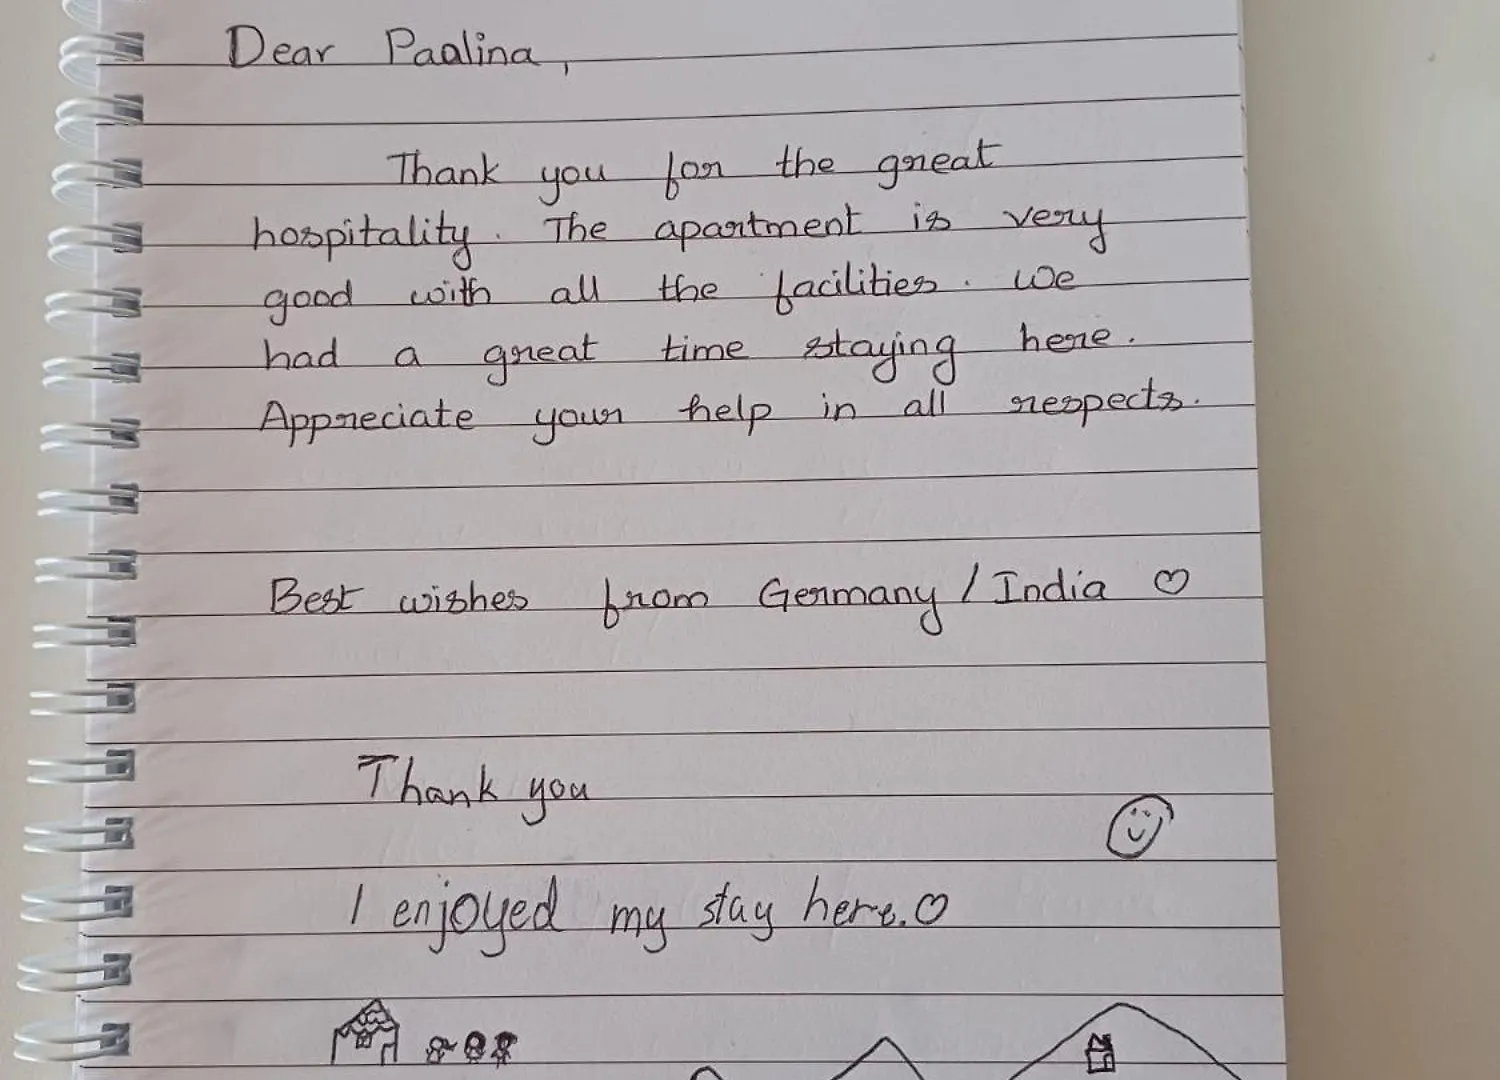 Dear Paalina,
Thank you for the great
hospitality. The apartment is very
good with all the facilities. We
had a great time staying here.
Appreciate your help in all respects.
Best wishes from Germany / India ♡
Thank you
I enjoyed my stay here. ♡